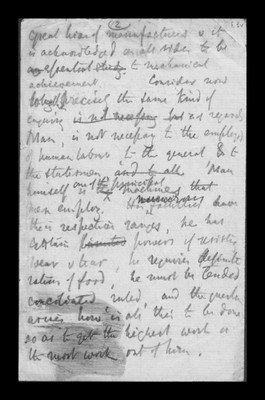 2
great hive of manufactures so it
is acknowledged on all sides to be
essential to mechanical
achievement. Consider now
whether precisely the same kind of
enquiry is not necessary as regards
Man, is not necessary to the employer
of human labour, to the general & to
the statesman, and to all. Man
himself is one of the principal machines that
men employ. His faculties have
their respective ranges, he has
certain powers of resisting
wear & tear, he requires definite
rations of food, he must be tended
conciliated ruled, and the question
arises how is all this to be done
so as to get the highest work or
the most work out of him.